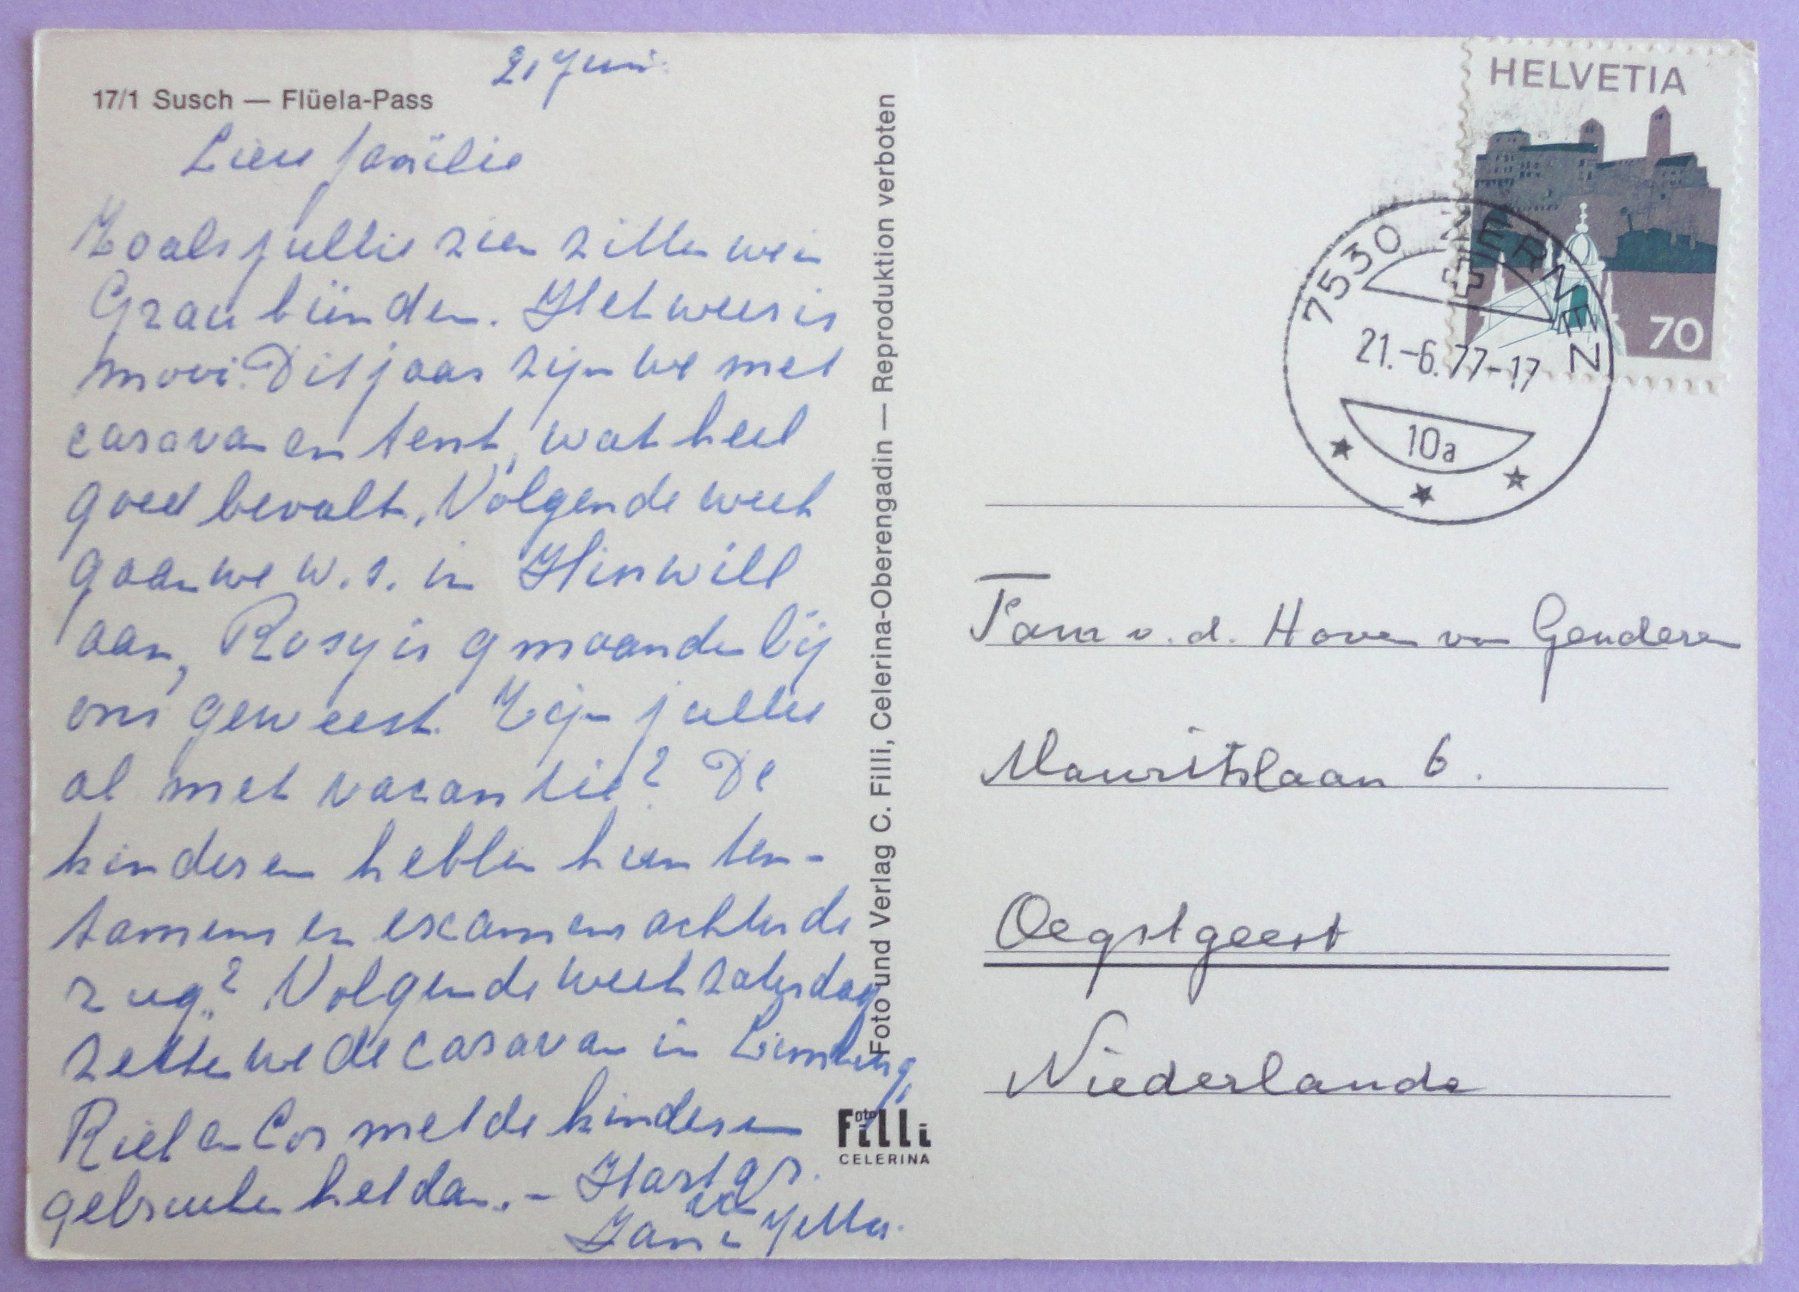 21 Juni
17/1 Susch — Flüela-Pass
Lieve familie
Zoals jullie zien zitten we in
Graubünden. Het weer is
mooi. Dit jaar zijn we met
caravan en tent, wat heel
goed bevalt. Volgende week
gaan we w.s. in Hinwill
aan, Rosy is 9 maanden bij
ons geweest. Zijn jullie
al met vacantie? De
kinderen hebben hun ten-
tamens en examens achter de
rug? Volgende week zaterdag
zetten we de caravan in Limburg,
Riet en Cor met de kinderen
gebruiken het dan. – Hart. gr.
van
Jan en Jelly.
Foto und Verlag C. Filli, Celerina-Oberengadin — Reproduktion verboten
Foto
Filli
CELERINA
HELVETIA
70
7530 ZERNEZ
21.-6.77-17
10a
Fam v. d. Hoven van Genderen
Mauritslaan 6.
Oegstgeest
Niederlande